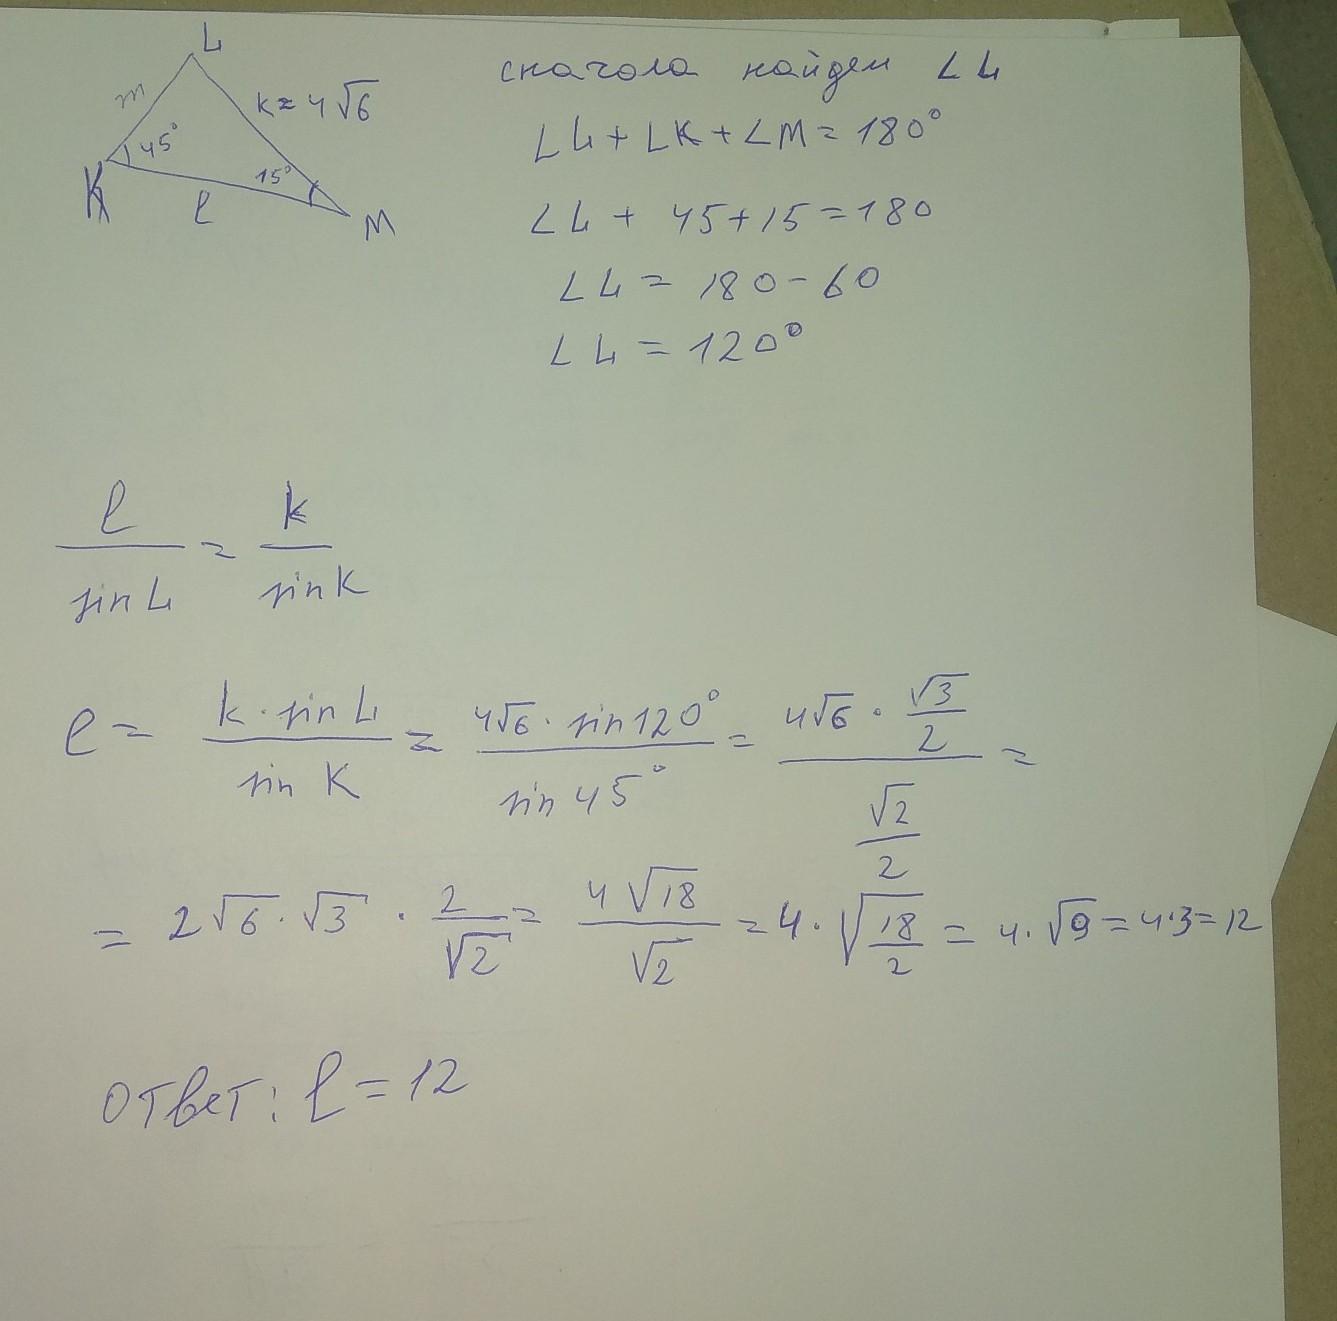 L
m
k = 4√6
45°
15°
K
l
M
сначола найдем ∠L
∠L + ∠K + ∠M = 180°
∠L + 45 + 15 = 180
∠L = 180 - 60
∠L = 120°
l / sin L = k / sin K
l = k · sin L / sin K = 4√6 · sin 120° / sin 45° = 4√6 · √3/2 / √2/2 =
= 2√6 · √3 · 2/√2 = 4√18 / √2 = 4 · √18/2 = 4 · √9 = 4·3 = 12
ответ: l = 12